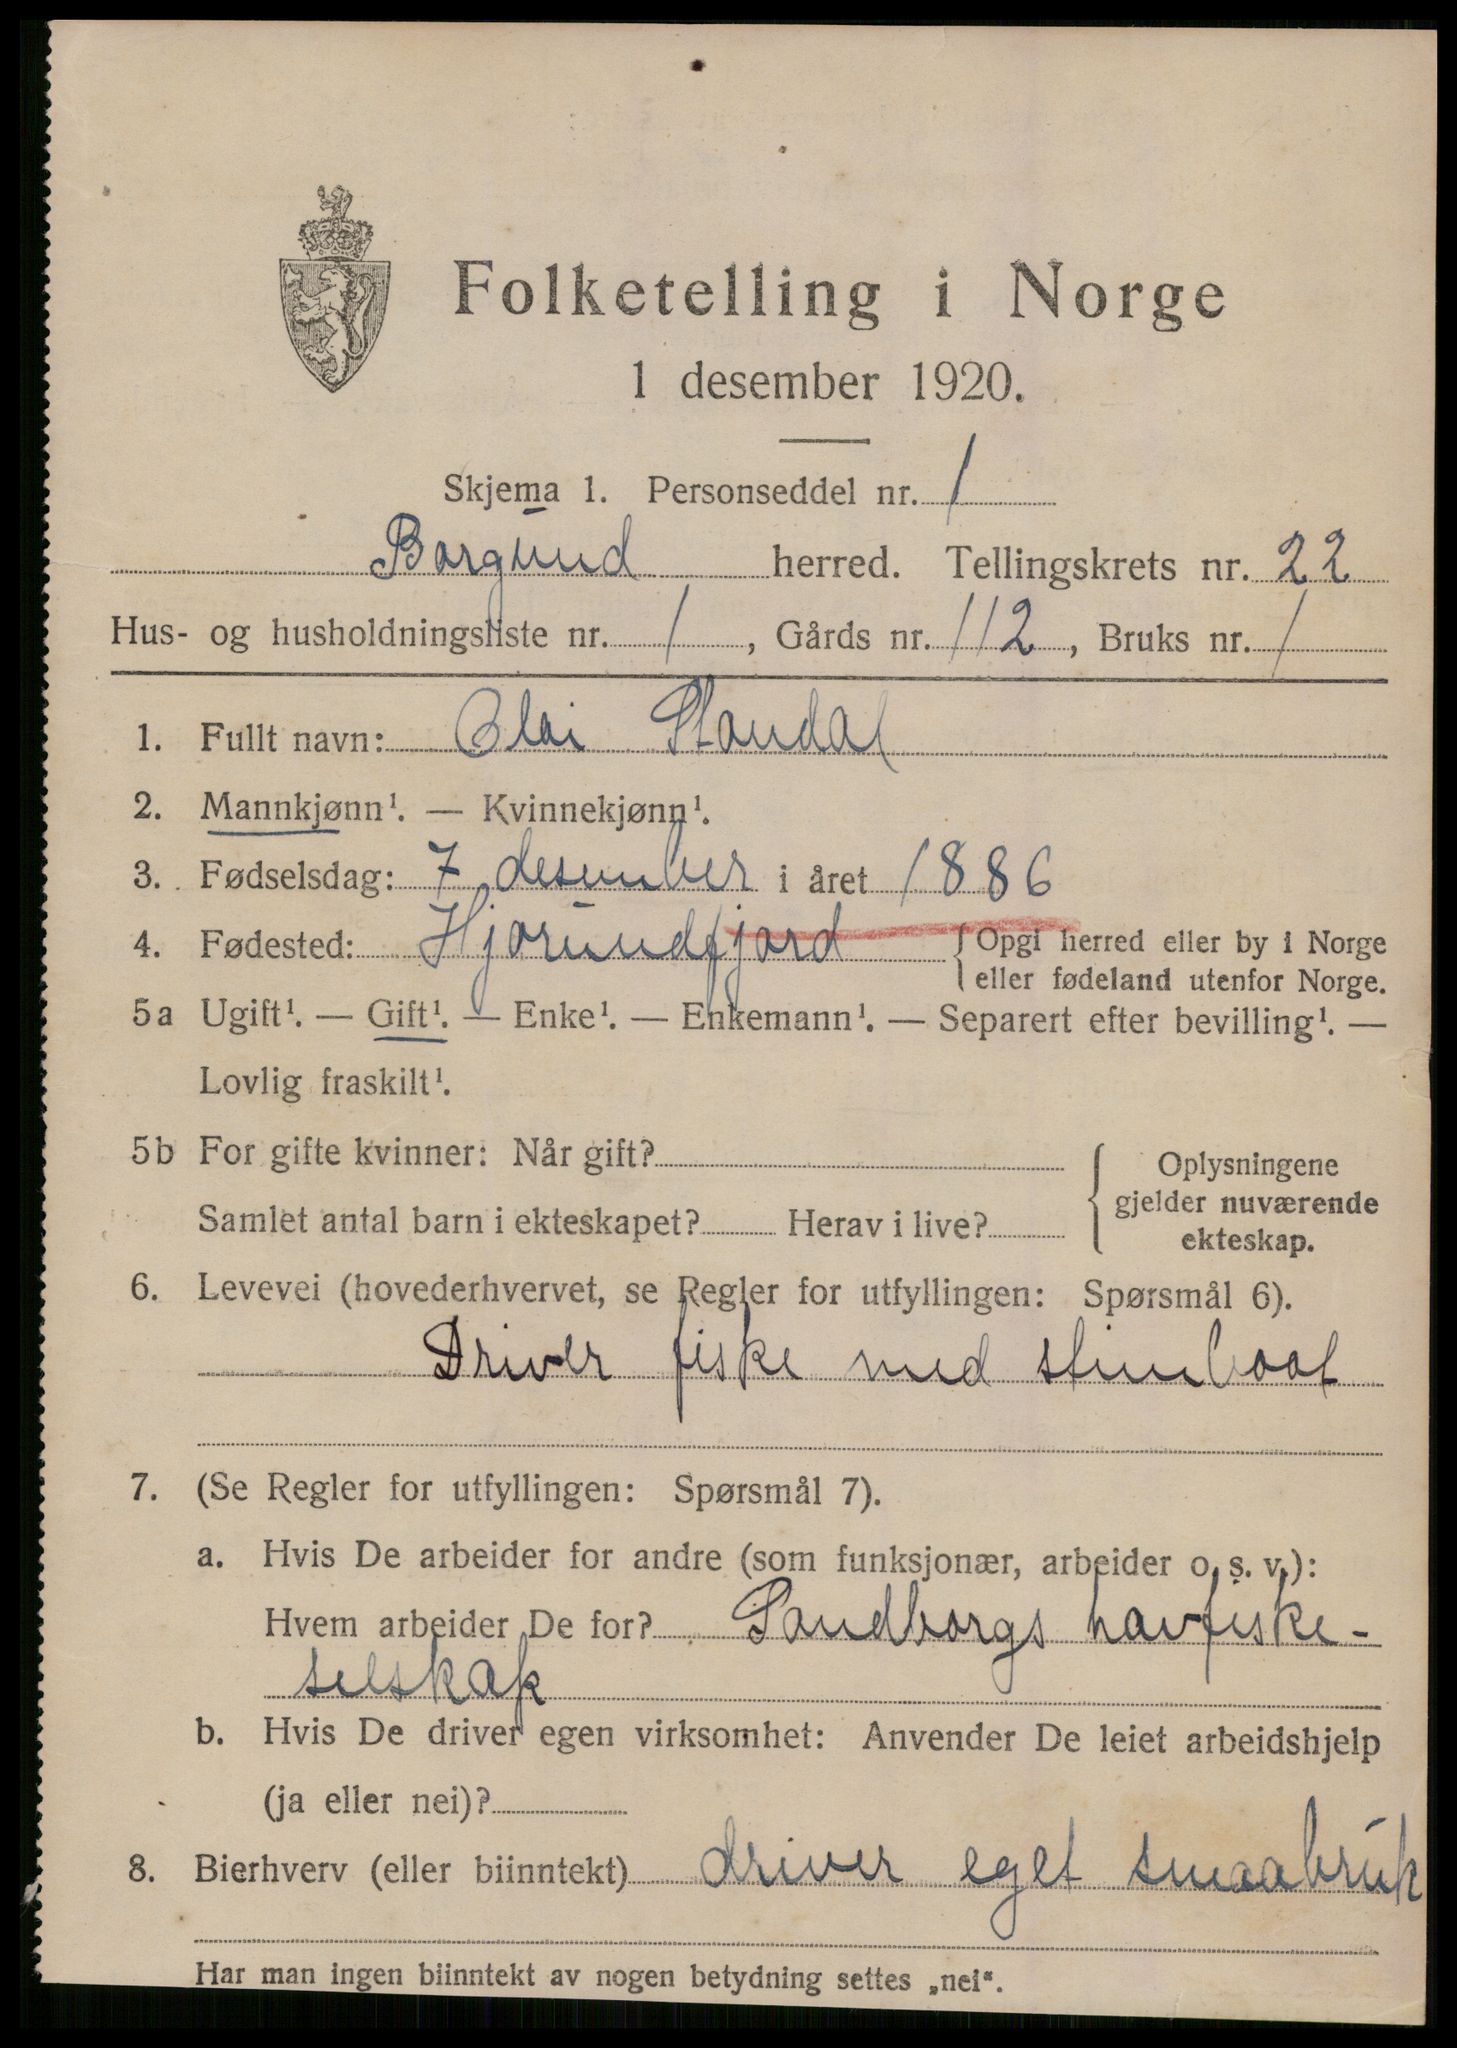 Folketelling i Norge
1 desember 1920.
Skjema 1. Personseddel nr. 1
Borgund herred. Tellingskrets nr. 22
Hus- og husholdningsliste nr. 1, Gårds nr. 112, Bruks nr. 1
1. Fullt navn: Olai Standal
2. Mannkjønn¹. — Kvinnekjønn¹.
3. Fødselsdag: 7 desember i året 1886
4. Fødested: Hjørundfjord { Opgi herred eller by i Norge
eller fødeland utenfor Norge.
5a Ugift¹. — Gift¹. — Enke¹. — Enkemann¹. — Separert efter bevilling¹. —
Lovlig fraskilt¹.
5b For gifte kvinner: Når gift?
Samlet antal barn i ekteskapet? Herav i live?
Oplysningene
gjelder nuværende
ekteskap.
6. Levevei (hovederhvervet, se Regler for utfyllingen: Spørsmål 6).
Driver fiske med stimbaat
7. (Se Regler for utfyllingen: Spørsmål 7).
a. Hvis De arbeider for andre (som funksjonær, arbeider o. s. v.):
Hvem arbeider De for? Sandborgs havfiske-
selskap
b. Hvis De driver egen virksomhet: Anvender De leiet arbeidshjelp
(ja eller nei)?
8. Bierhverv (eller biinntekt) driver eget smaabruk
Har man ingen biinntekt av nogen betydning settes „nei“.